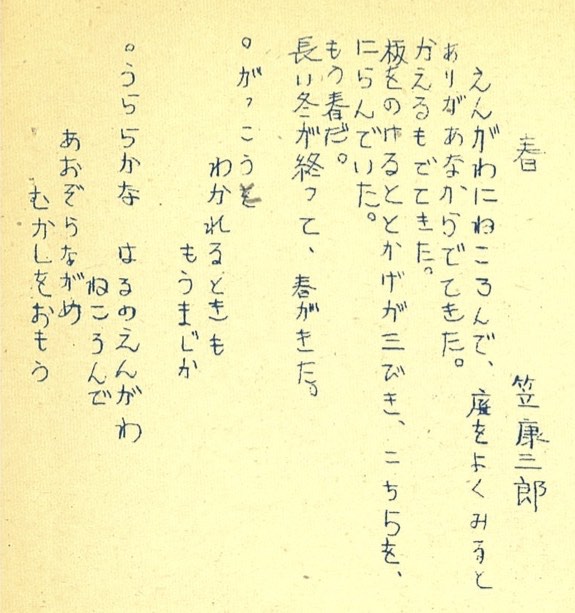 春
笠康三郎
えんがわにねころんで、庭をよくみると
ありがあなからでてきた。
かえるもでてきた。
板をのけるととかげが三びき、こちらを、
にらんでいた。
もう春だ。
長い冬が終って、春がきた。
○がっこうを
わかれるときも
もうまじか
○うららかな はるのえんがわ
ねころんで
あおぞらながめ
むかしをおもう